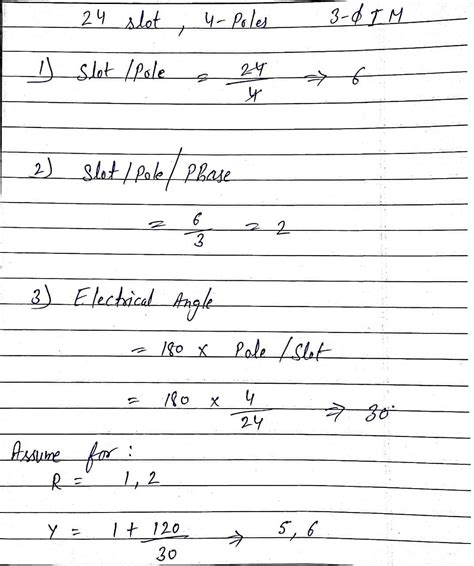 24 slot, 4-Poles 3-ϕ I M
1) Slot/Pole = 24/4 ⇒ 6
2) Slot/Pole/Phase
= 6/3 = 2
3) Electrical Angle
= 180 × Pole/Slot
= 180 × 4/24 ⇒ 30°
Assume for :
R = 1, 2
Y = 1 + 120/30 ⇒ 5, 6